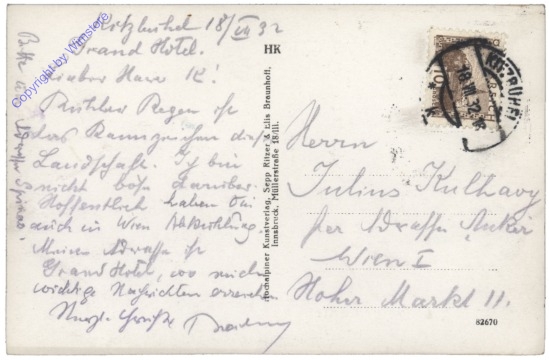 Kitzbühel 18/VII 32
Grand Hotel.
Lieber Herr K!
Regen ist
das Kennzeichen dieser
Landschaft. Ich bin
nicht böse darüber.
Hoffentlich haben Sie
auch in Wien Abkühlung
Meine Adresse ist
Grand Hotel, wo mich
wichtige Nachrichten erreichen
Herzl. Grüße
Bitte
Copyright by Wimstore
HK
Hochalpiner Kunstverlag, Sepp Ritzer & Elia Braunhoff.
Innsbruck, Müllerstraße 18/III.
KITZBÜHEL
18.VII.32
Herrn
Julius Kulhavy
per Adresse Anker
Wien I
Hoher Markt 11.
82670